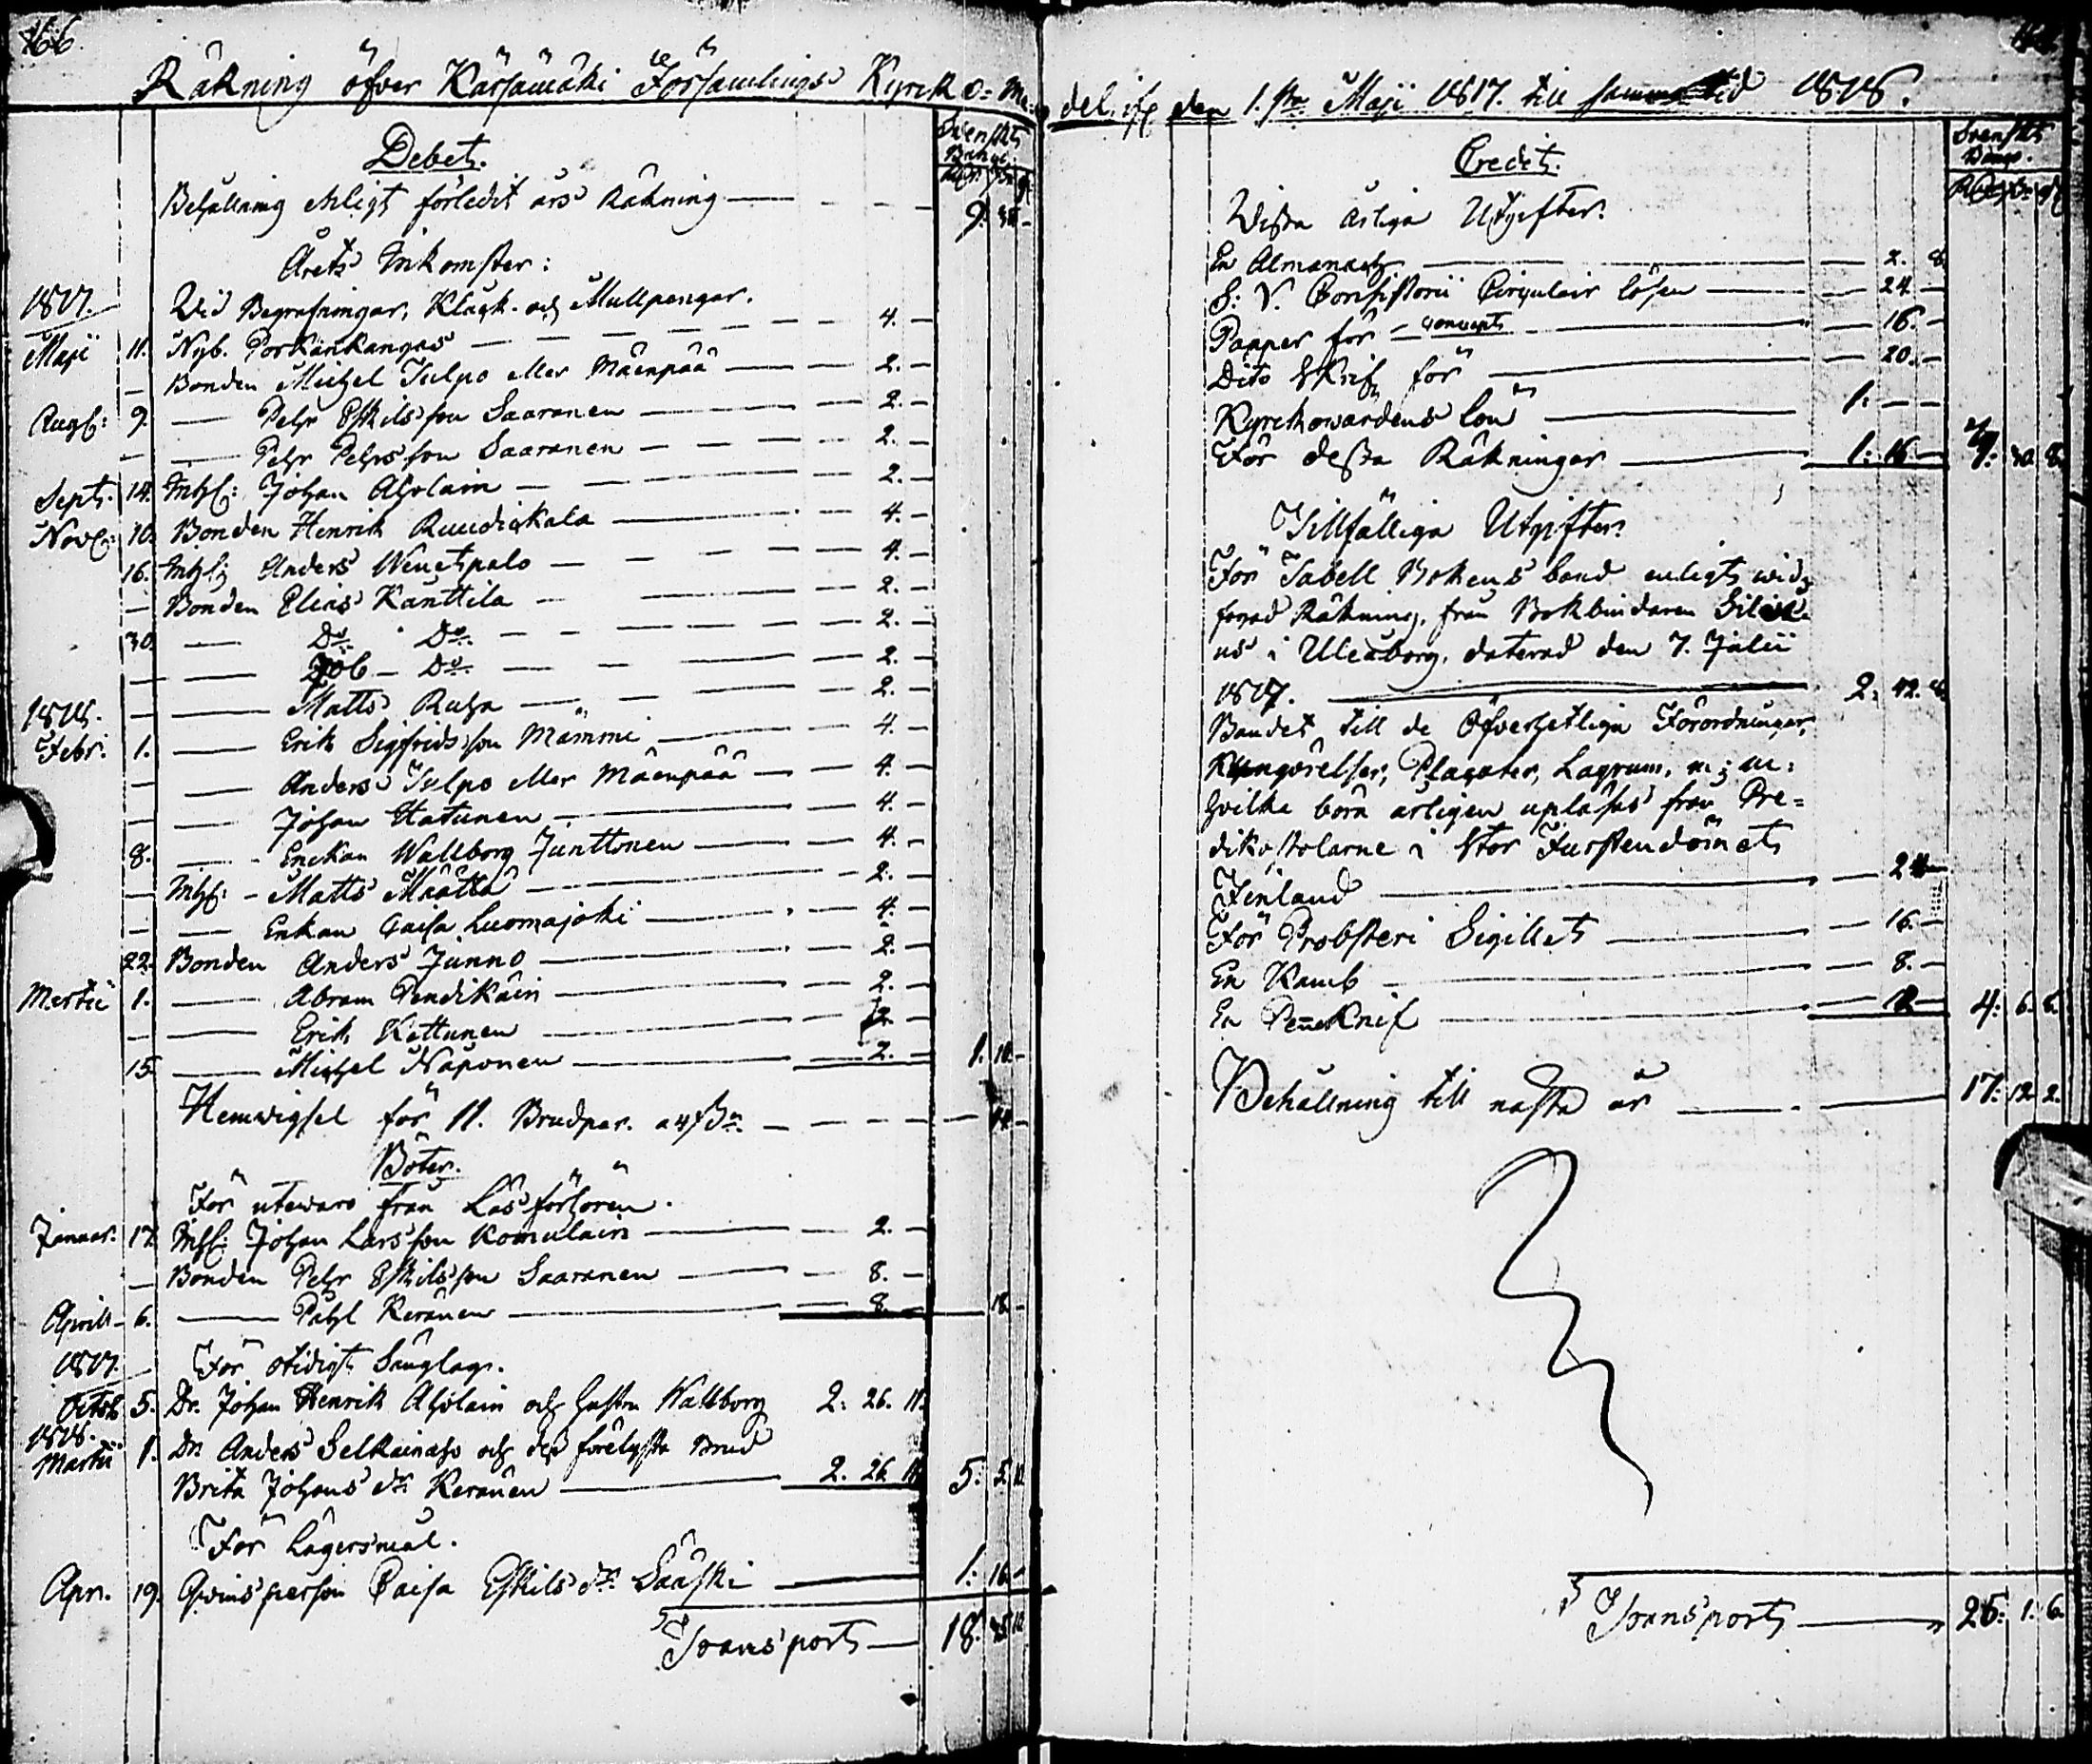 166.
Räkning öfver Kärsämäki Församlings Kyrck O: Me-
Debet.
Svenskt Banco.
Behållning enligt förledit års Räkning — 9:
Årets Inkomster:
1817. Wid Begrafningar, Klock- och Mullpengar.
Maji 11. Nyb. Porkankangas — 4. —
— Bonden Michel Tulpo eller Mäenpää — 2. —
Aug: 9. — Pehr Eskilsson Saaranen — 2. —
— — Pehr Pehrsson Saaranen — 2. —
Sept. 14. Inhs: Johan Aholain — 2. —
Nov: 10. Bonden Henrik Ruudiskala — 4. —
16. Inhs: Anders Wenetpalo — 4. —
— Bonden Elias Kanttila — 2. —
30. — Do. Do. — 2. —
— — Do. — 2. —
— — Matts Ruha — 2. —
1818.
Febr. 1. — Erik Sigfridsson Mämmi — 4. —
— — Anders Tulpo eller Mäenpää — 4. —
— — Johan Hatunen — 4. —
8. — Enckan Wallborg Junttonen — 4. —
— Inhs: — Matts Määttä — 2. —
— — Enkan Caisa Luomajoki — 4. —
22. Bonden Anders Junno — 2. —
Martii 1. — Abram Pendikäin — 2. —
— — Erik Kettunen — 2. —
15. — Michel Naponen — 2. — 1. 18. —
Hemvigsel för 11. Brudpar. a 4 ß. — 44. —
Böter.
För utewaro från Läsförhören.
Januar: 17. Inhs: Johan Larsson Komulain — 2. —
— Bonden Pehr Eskilsson Saaranen — 8. —
Aprill — 6. — Påhl Keränen — 8. — 18. —
1817. För otidigt Sänglag.
Octob. 5. Dr. Johan Henrik Aholain och hustru Wallborg 2: 26. 11.
1818.
Martii 1. Dr. Anders Selkäinaho och dess förelysta Brud
Brita Johans dr. Keränen — 2. 26. 11. 5: 5. 10
För Lägersmål.
Apr. 19. Qvinsperson Caisa Eskils dr. Sääski — 1: 16. —
Transport — 18.
del, ifr. den 1:sta Maji 1817. till samma tid 1818.
Credit.
Svenskt Banco.
Wissa årliga Utgifter.
En Almanach — 2. 8.
S: V. Consistorii Circulair lösen — 24. —
Papper för — concept — 16. —
Dito Skrif för — 20. —
Kyrckowärdens lön — 1: — —
För dessa Räkningar — 1: 16. —
Tillfälliga Utgifter.
För Tabell Bokens band enligt wid-
fogad Räkning, från Bokbindaren
us i Uleåborg, daterad den 7. Julii
1817. — 2: 42. 8
Bandet till de Öfverhetliga Förordningar,
Kungörelser, Placater, Lagrum, m: m:
hvilka böra årligen upläsas från Pre-
dikostolarne i Stor Furstendömet
Finland — 24 —
För Probsteri Sigillet — 16. —
En Kamb — 8. —
En Penne Knif — 12 — 4: 6. 8.
Behållning till nästa år — 17: 12. 2.
Transport — 26: 1. 6.